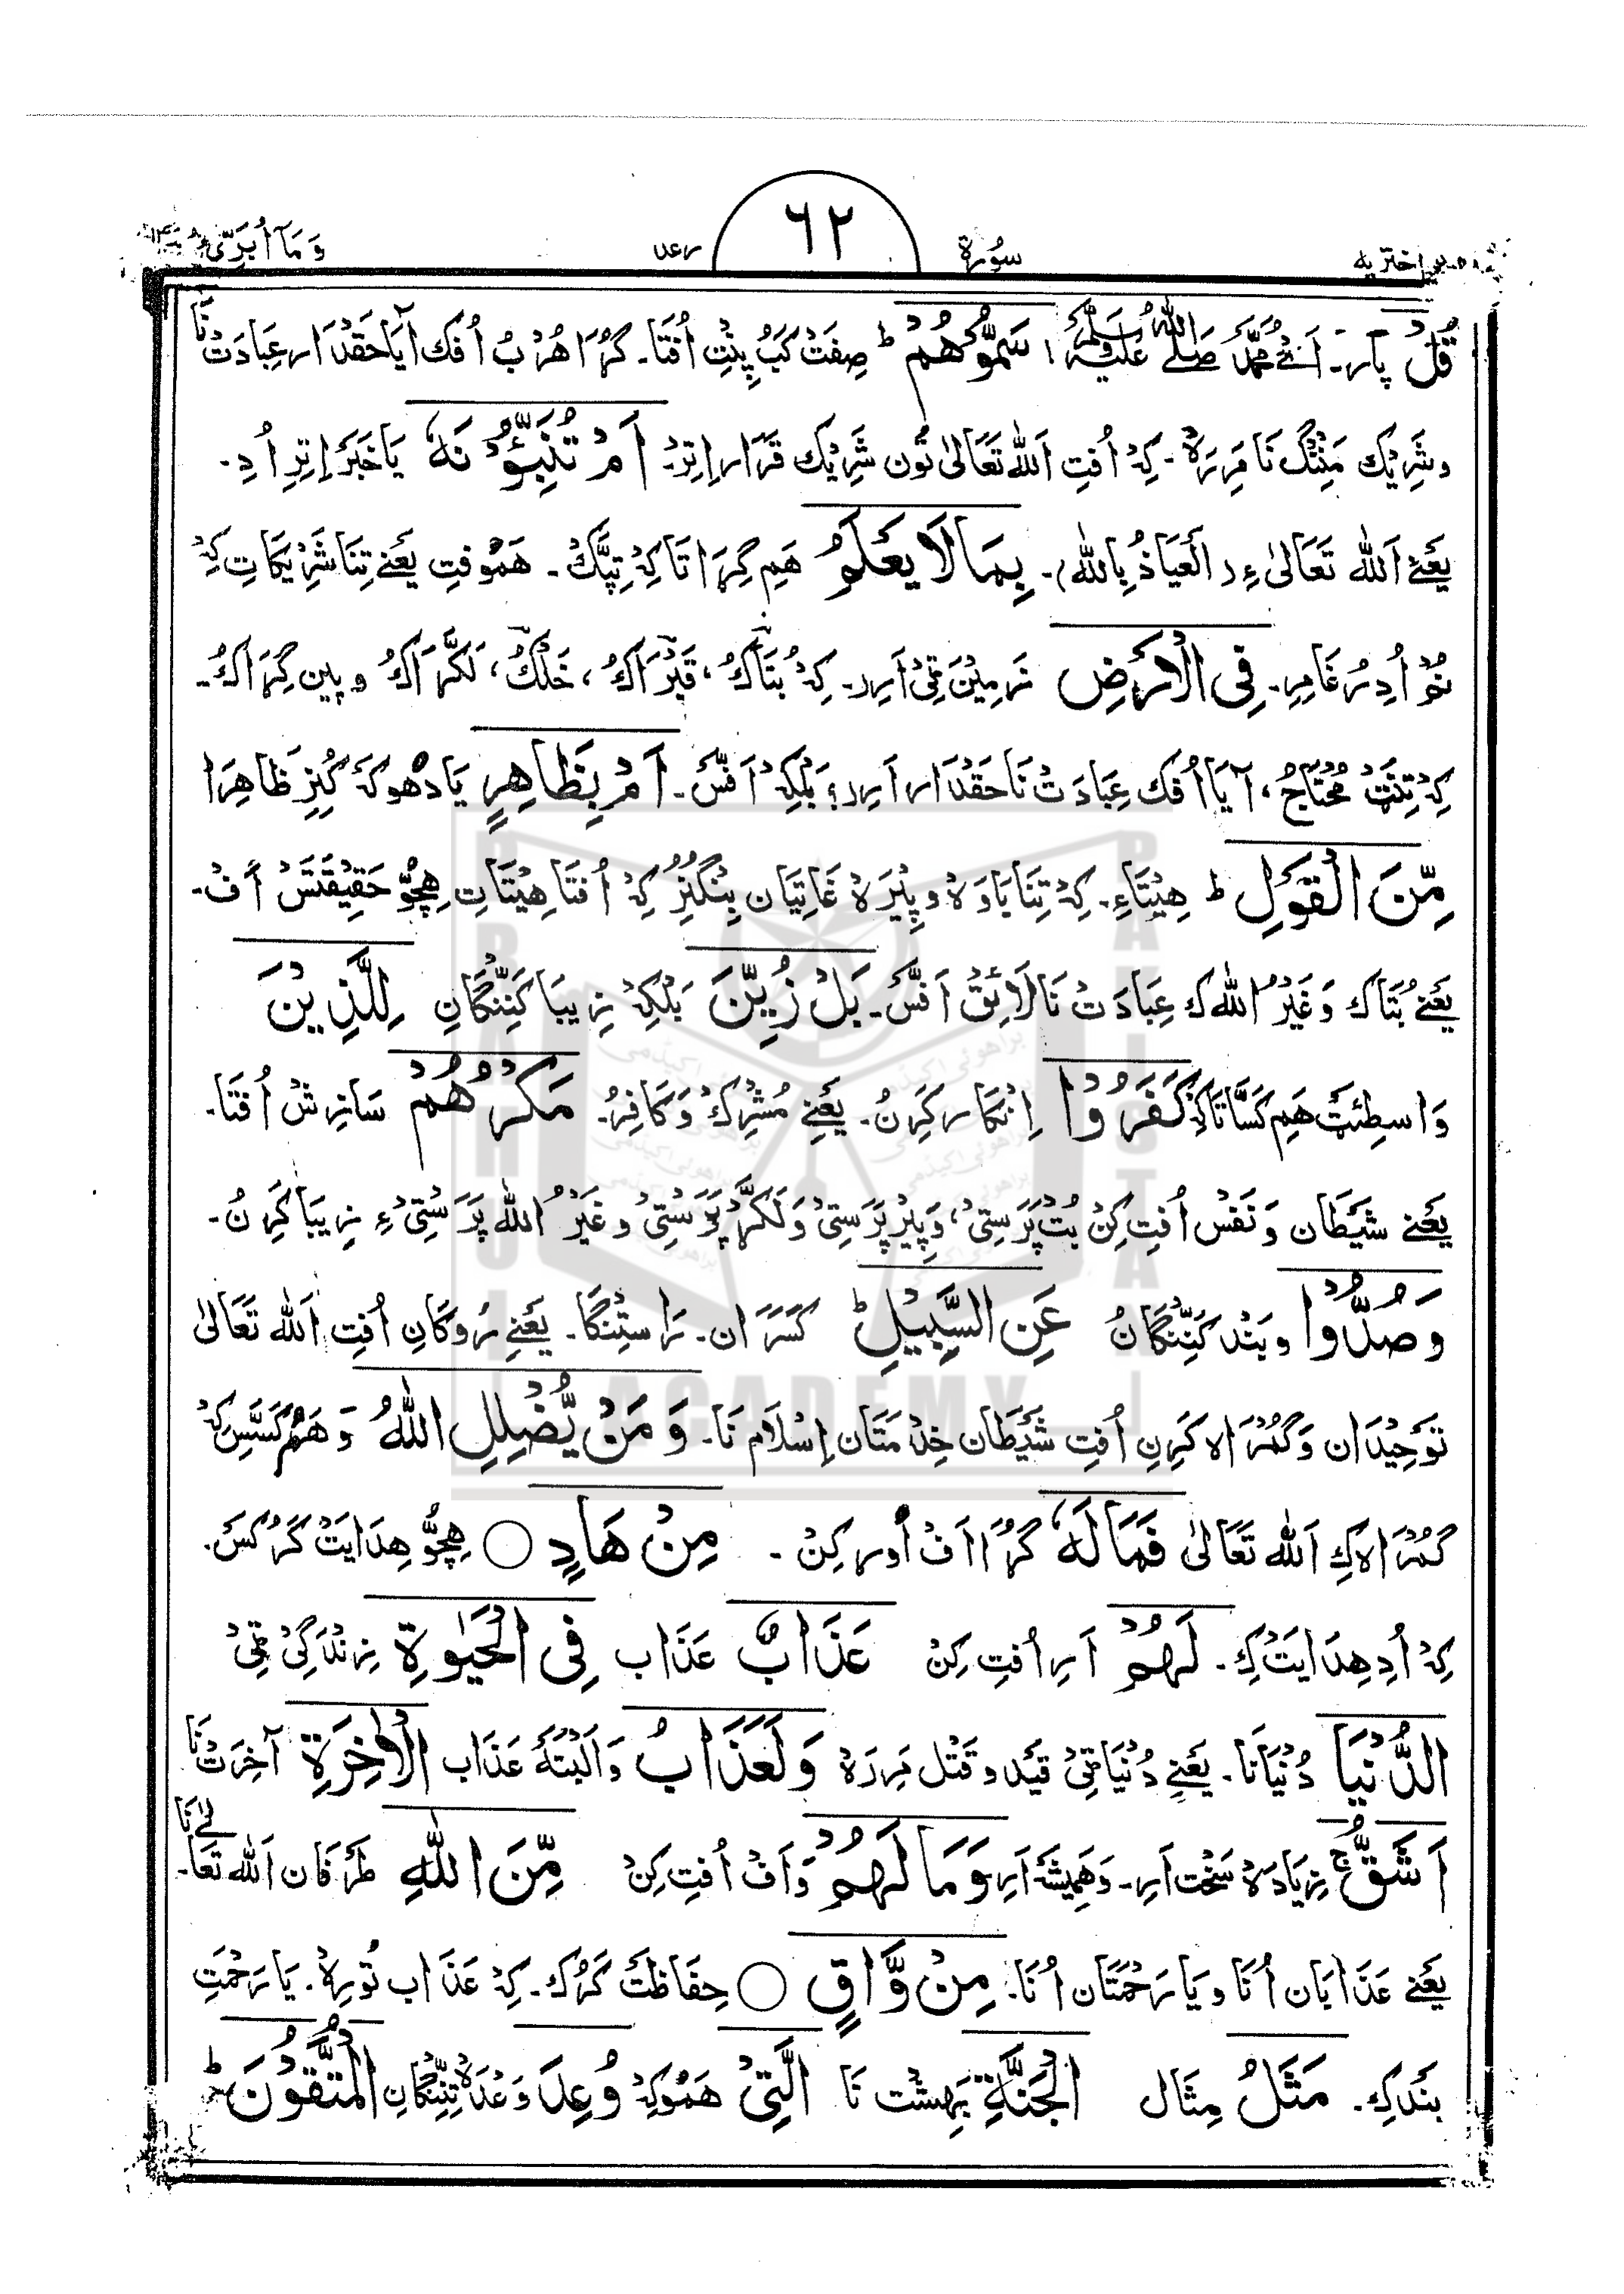 وَمَآ اُبَرِّئُ ۱۳ رعد ٦٢ سُورۃ اختریه
قُلْ پار۔ اَے مُحَمَّدْ صَلَے اللهُ عَلَیْہِ وَسَلَّمْ، سَمُّوْهُمْ ؕ صِفَتْ کَبُ پِنْتِ اُفْتَا۔ گُڑَا هُرْبُ اُفک اٰیَا حَقْدَار عِبَادَتْ نَا
وشَرِیْك مَنِنْگ نَا مَرِرَہْ۔ کِہْ اُفتِ اَللّٰه تَعَالیٰ تُون شَرِیْك قَرَار اِتِرْ۔ اَمْ تُنَبِّـُٔوْنَهٗ یَا خَبَر اِتِرِ اُدِ۔
یَعْنِے اَللّٰه تَعَالیٰ ءِ (اَلْعَیَاذُ بِاللّٰه)۔ بِمَا لَا یَعْلَمُ هَمِ گِڑَا تَا کِہْ تِپَّكْ۔ هَمُوفتِ یَعْنِے تِنَا شَرِیْکَاتِ کِہْ
نُمْ اُدِرُ غَامِرِ۔ فِی الْاَرْضِ زَمِیْن ٹِی اَرِر۔ کِہْ بُتَاكُ، قَبْرَاكُ، خَلْكُ، لَکَّڑَاكُ و پین گِڑَاكُ۔
کِہْ تِنَتْ مُحْتَاجُ، آیَا اُفك عِبَادَتْ نَا حَقْدَار اَرِر؟ بَلْکِہْ اَفَّسْ۔ اَمْ بِظَاهِرٍ یَا دْهوکَہ کُنِرِ ظَاهِرَا
مِّنَ الْقَوْلِ ؕ هِیْتَاءِ۔ کِہْ تِنَا بَاوَہْ و پِیْرَہْ غَاتِیَان بِنْگِنِرُ کِہْ اُفتَا هِیْتَاتِ هِچُّ حَقِیْقَتَسْ اَفْ۔
یَعْنِے بُتَاك وَغَیْرُ اللّٰهك عِبَادَتْ نَا لَائِقْ اَفَّسْ۔ بَلْ زُیِّنَ بَلْکِہْ زِیبَا کَنِنْگَانِ لِلَّذِیْنَ
وَاسِطِئَتْ هَمِ کَسَّاتَا کِہْ کَفَرُوْا اِنْکَار کَرِنُ۔ یَعْنِے مُشْرِكْ وَکَافِرُ۔ مَکْرُهُمْ سَازِشْ اُفْتَا۔
یَعْنِے شَیْطَان وَنَفْسْ اُفتِ کِنْ بُتْ پَرَسْتِیْ، وَپِیْرْ پَرَسْتِیْ وَلَکَّڑْ پَرَسْتِیْ وغَیْرُ اللّٰه پَرَسْتِیْ ءِ زِیبَا کَرِنُ۔
وَصُدُّوْا وبَنْد کَنِنْگَانُ عَنِ السَّبِیْلِ ؕ کَسَرَان۔ رَاسْتِنْگَا۔ یَعْنِے رُوکَانِ اُفتِ اَللّٰه تَعَالیٰ
تَوْحِیْدَان وَگُمْرَاہ کَرِنِ اُفتِ شَیْطَان خِدْمَتَان اِسْلَام نَا۔ وَمَنْ یُّضْلِلِ اللّٰهُ وَهَمْ کَسَّسْ کِہْ
گُمْرَاہ کِ اَللّٰه تَعَالیٰ فَمَا لَهٗ گُڑَا اَفْ اُور کِنْ۔ مِنْ هَادٍ ○ هِچُّ هِدَایَتْ کَرُکَسْ۔
کِہْ اُدِ هِدَایَتْ کِ۔ لَهُمْ اَرِ اُفتِ کِنْ عَذَابٌ عَذَاب فِی الْحَیٰوةِ زِنْدَگِیْ ٹِیْ
الدُّنْیَا دُنْیَانَا۔ یَعْنِے دُنْیَا ٹِیْ قَیْد و قَتْل مَرِرَہْ وَلَعَذَابُ وَاَلْبَتَّہ عَذَاب الْاٰخِرَةِ آخِرَتْ نَا
اَشَقُّ ۚ زِیَادَہْ سَخْت اَرِ۔ وَهَمِیْشَہ اَرِ وَمَا لَهُمْ وَاَفْ اُفتِ کِنْ مِّنَ اللّٰهِ طَرَفَان اَللّٰه تَعَالیٰ نَا۔
یَعْنِے عَذَابَان اُنَا و یَا رَحْمَتَان اُنَا۔ مِنْ وَّاقٍ ○ حِفَاظَتْ کَرُك۔ کِہْ عَذَاب تُورِہْ۔ یَا رَحْمَتِ
بَنْدکِ۔ مَثَلُ مِثَال الْجَنَّةِ بَهِشْت نَا الَّتِیْ هَمُوکِہْ وُعِدَ وَعْدَہْ تِنِنْگَانِ الْمُتَّقُوْنَ ؕ